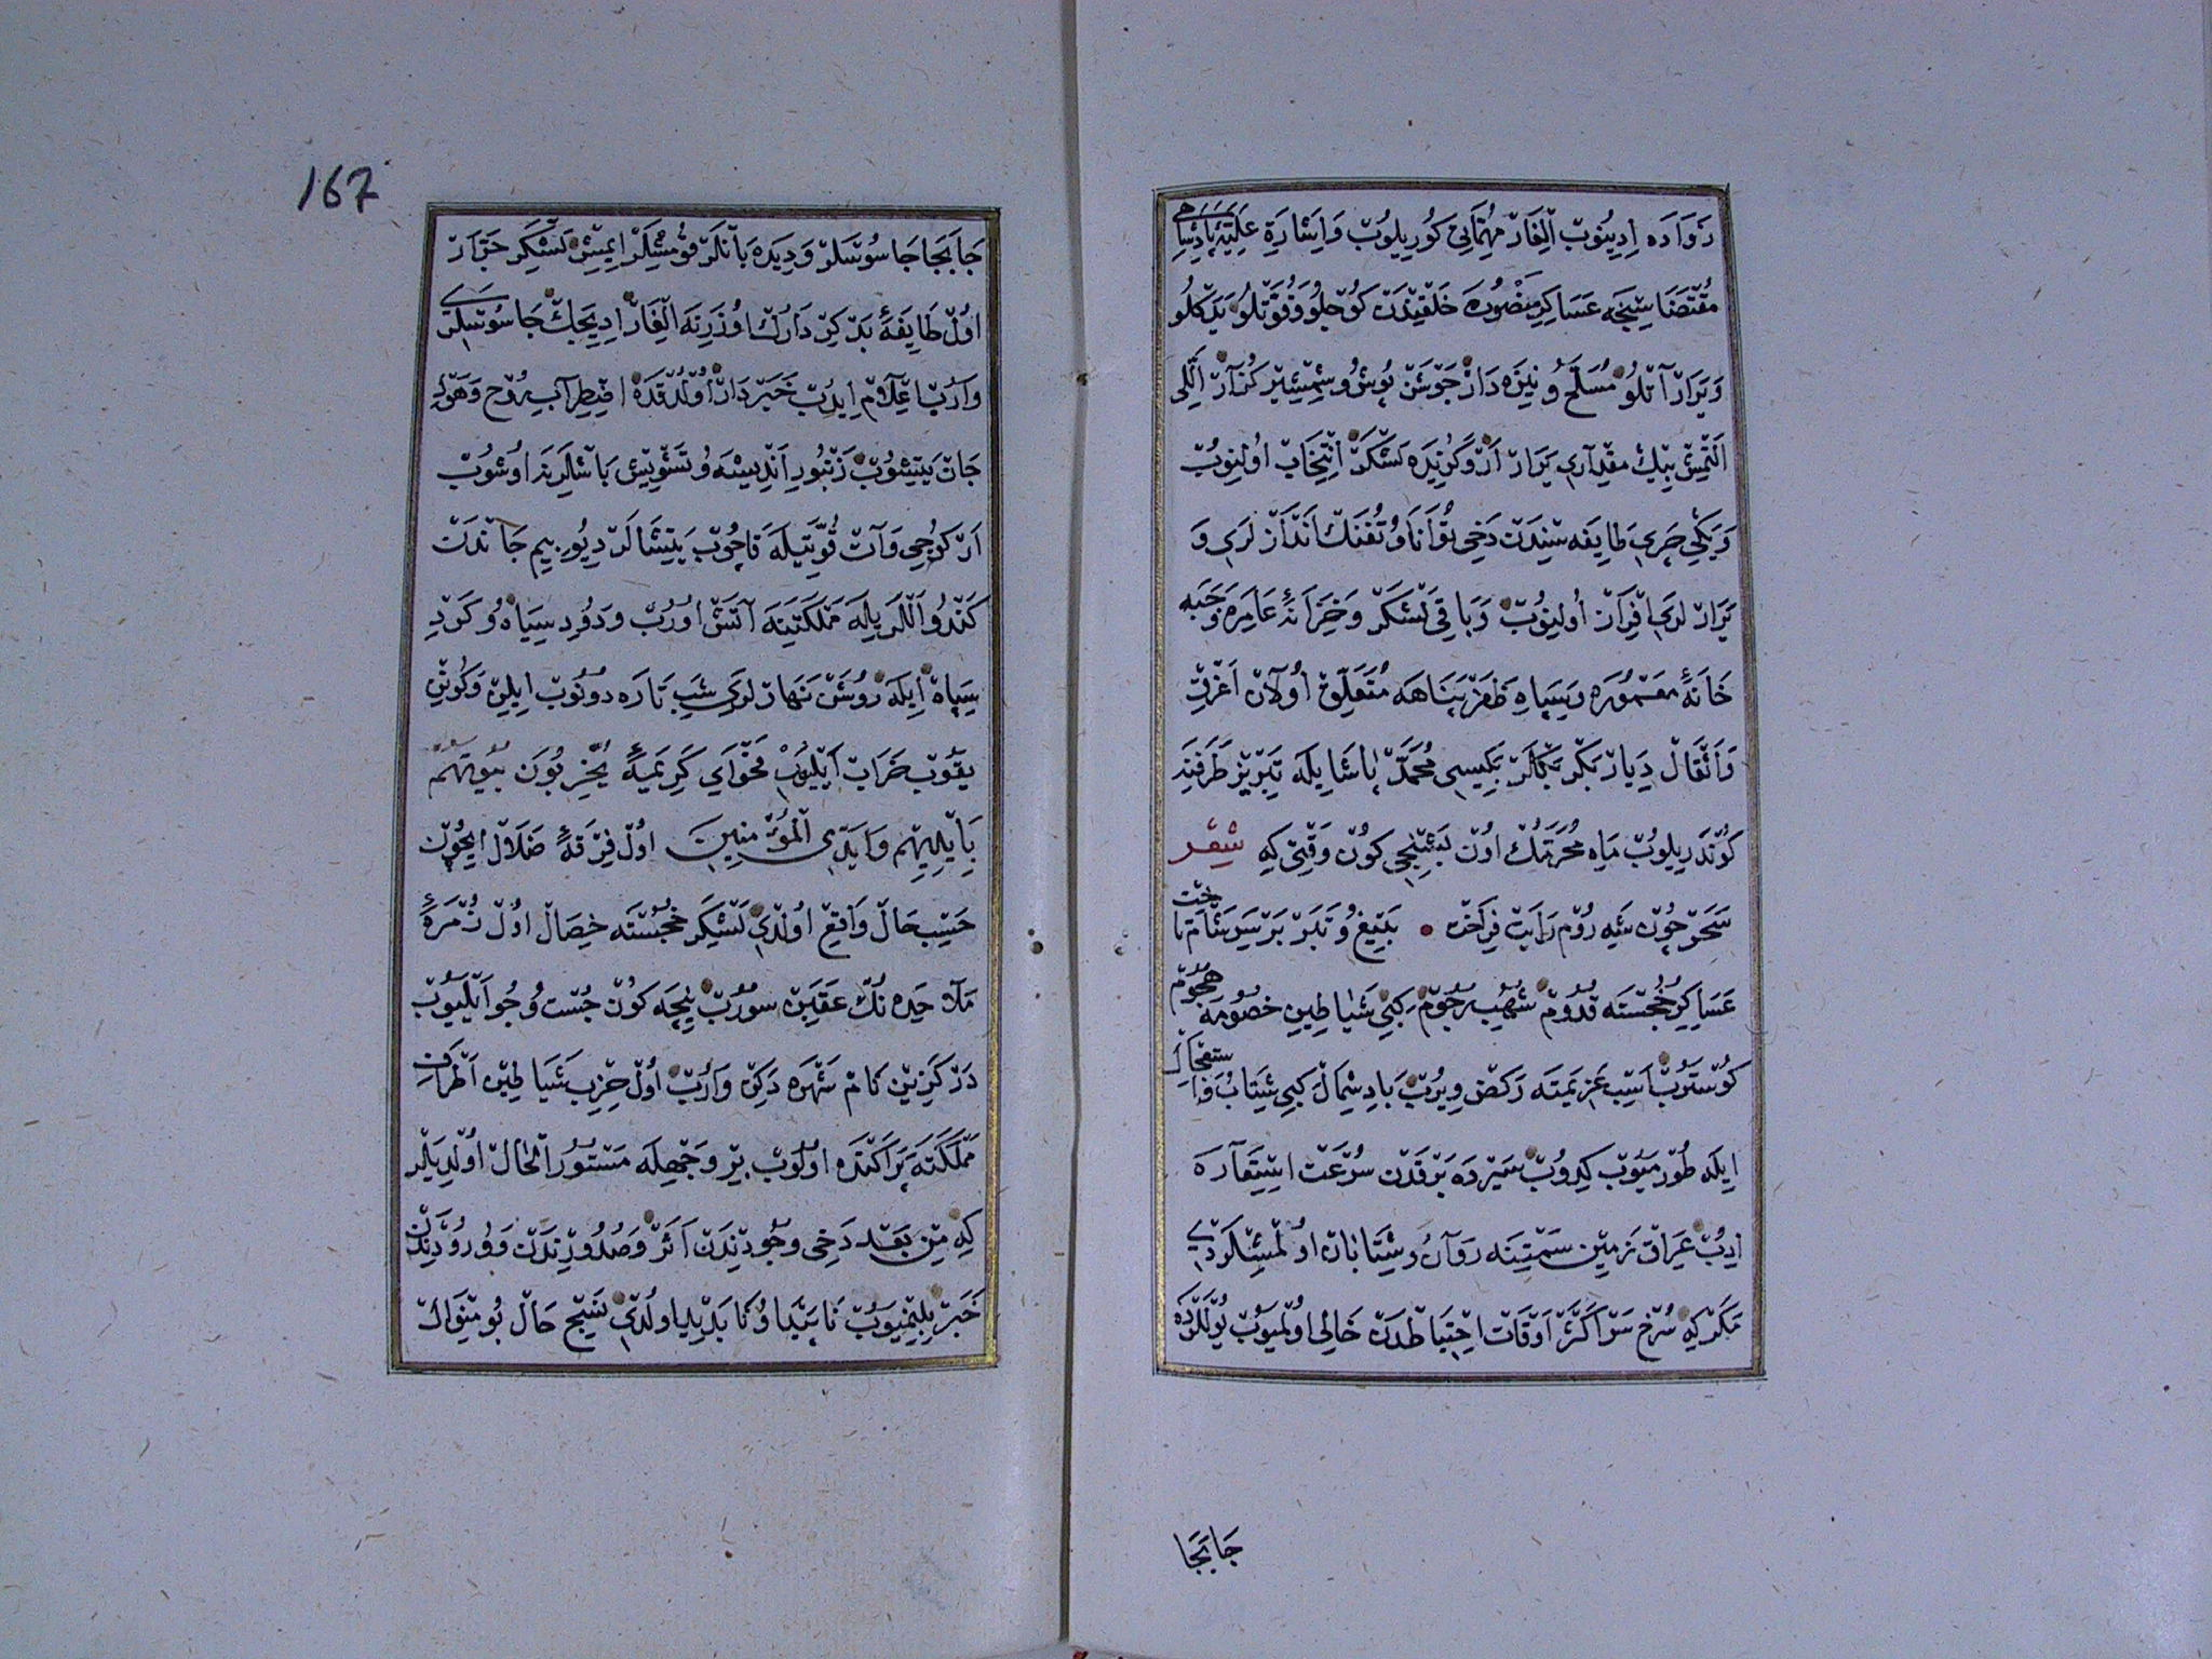 زواده ايدينوب ايلغار مهماتى كوريلوب و اشارة عليهٔ پادشاهى
مقتضاسنجه عساكر منصوره خلقيندن كوجلو و قوتلو يدكلو
و يرار آتلو مسلح و نيزه دار جوشن پوش و شمشير كذار اللى
التمش بيك مقدارى يرار ار و كزيده لشكر انتخاب اولنوب
و يكيچرى طايفه سندن دخى توانا و تفنك اندازلرى و
يرارلرى افراز اولنوب و باقى لشكر و خزانهٔ عامره و جبه
خانهٔ معموره و سپاه ظفرپناهه متعلق اولان اغرق
و اثقال ديار بكر بكلر بكيسى محمد پاشا يله تبريز طرفنه
كوندريلوب ماه محرمك اون بشنجى كون وقتى كه شعر
سحر چون شه روم رايت فراخت • بتيغ و تبر بر سر شام تاخت
عساكر خجسته قدوم شهب رجوم كبى شياطين خصومه هجوم
كوستروب اسب عزيمته ركض ويروب باد شمال كبى شتاب و استعجال
ايله طورميوب كيدوب سيرده برقدن سرعت استعاره
ايدوب عراق زمين سمتنه روان و شتابان اولمشلردى
مكر كه سرخ سر اكثر اوقات احتياطدن خالى اولميوب يوللرده
جابجا
167
جابجا جاسوسلر و ديده بانلر قومشلر ايمش لشكر جرار
اول طايفهٔ بد كردارك اوزرينه ايلغار ايديجك جاسوسلرى
واروب اعلام ايدوب خبردار اولدقده اضطراب روح و هول
جان يتيشوب زنبور انديشه و تشويش باشلرينه اوشوب
ار كوجى و آت قوتيله قاچوب يتشالر ديو بيم جاندن
كندو اللريله مملكتينه آتش اوروب و دود سياه و كرد
سپاه ايله روشن نهارلرى شب تاره دونوب ايلين و كونين
يقوب خراب ايليوب فحواى كريمهٔ يخربون بيوتهم
بايديهم و ايدى المؤمنين اول فرقهٔ ضلال ايچون
حسب حال واقع اولدى لشكر خجسته خصال اول زمرهٔ
ملاحده نك عقبين سوروب نيجه كون جست و جو ايليوب
دركزين نام شهره دكين واروب اول حزب شياطين اطراف
مملكته پراكنده اولوب بر وجهله مستور الحال اولديلر
كه من بعد دخى وجودندن اثر و صدورندن و ورودندن
خبر بيلنميوب ناپيدا و نابديد اولدى نسيج حال بو منوال